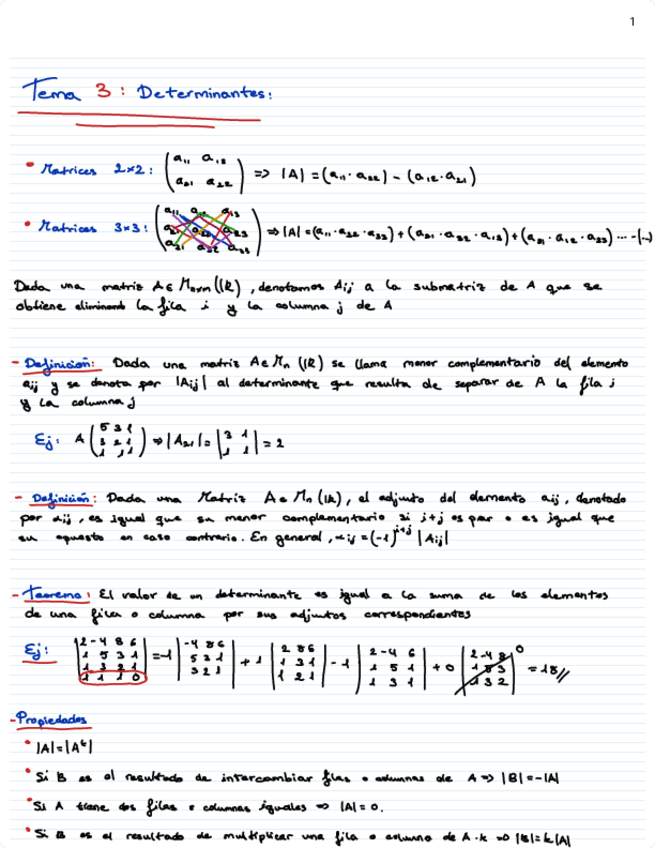 1
Tema 3: Determinantes:
• Matrices 2×2: (a₁₁ a₁₂ / a₂₁ a₂₂) => |A| = (a₁₁·a₂₂) - (a₁₂·a₂₁)
• Matrices 3×3: (a₁₁ a₁₂ a₁₃ / a₂₁ a₂₂ a₂₃ / a₃₁ a₃₂ a₃₃) => |A| = (a₁₁·a₂₂·a₃₃) + (a₂₁·a₃₂·a₁₃) + (a₃₁·a₁₂·a₂₃) ... - (...)
Dada una matriz A ∈ (ℝ), denotamos Aij a la submatriz de A que se
obtiene eliminand la fila i y la columna j de A
- Definición: Dada una matriz A ∈ Mn (ℝ) se llama menor complementario del elemento
aij y se denota por |Aij| al determinante que resulta de separar de A la fila i
y la columna j
Ej: A => |A₂₁| = |3 1 / 1 1| = 2
- Definición: Dada una Matriz A ∈ Mn (ℝ), el adjunto del elemento aij, denotado
por αij, es igual que su menor complementario si i+j es par o es igual que
su opuesto en caso contrario. En general, αij = (-1)^(i+j) |Aij|
- Teorema: El valor de un determinante es igual a la suma de los elementos
de una fila o columna por sus adjuntos correspondientes
Ej: |2 -4 8 6 / 1 5 3 1 / 1 3 2 1 / 1 1 1 0| = -1 |-4 8 6 / 5 3 1 / 3 2 1| + 1 |2 8 6 / 1 3 1 / 1 2 1| - 1 |2 -4 6 / 1 5 1 / 1 3 1| + 0 |2 -4 8 / 1 5 3 / 1 3 2| 0 = 18//
- Propiedades
• |A| = |Aᵗ|
• Si B es el resultado de intercambiar filas o columnas de A => |B| = -|A|
• Si A tiene dos filas o columnas iguales => |A| = 0.
• Si B es el resultado de multiplicar una fila o columna de A · k => |B| = k|A|